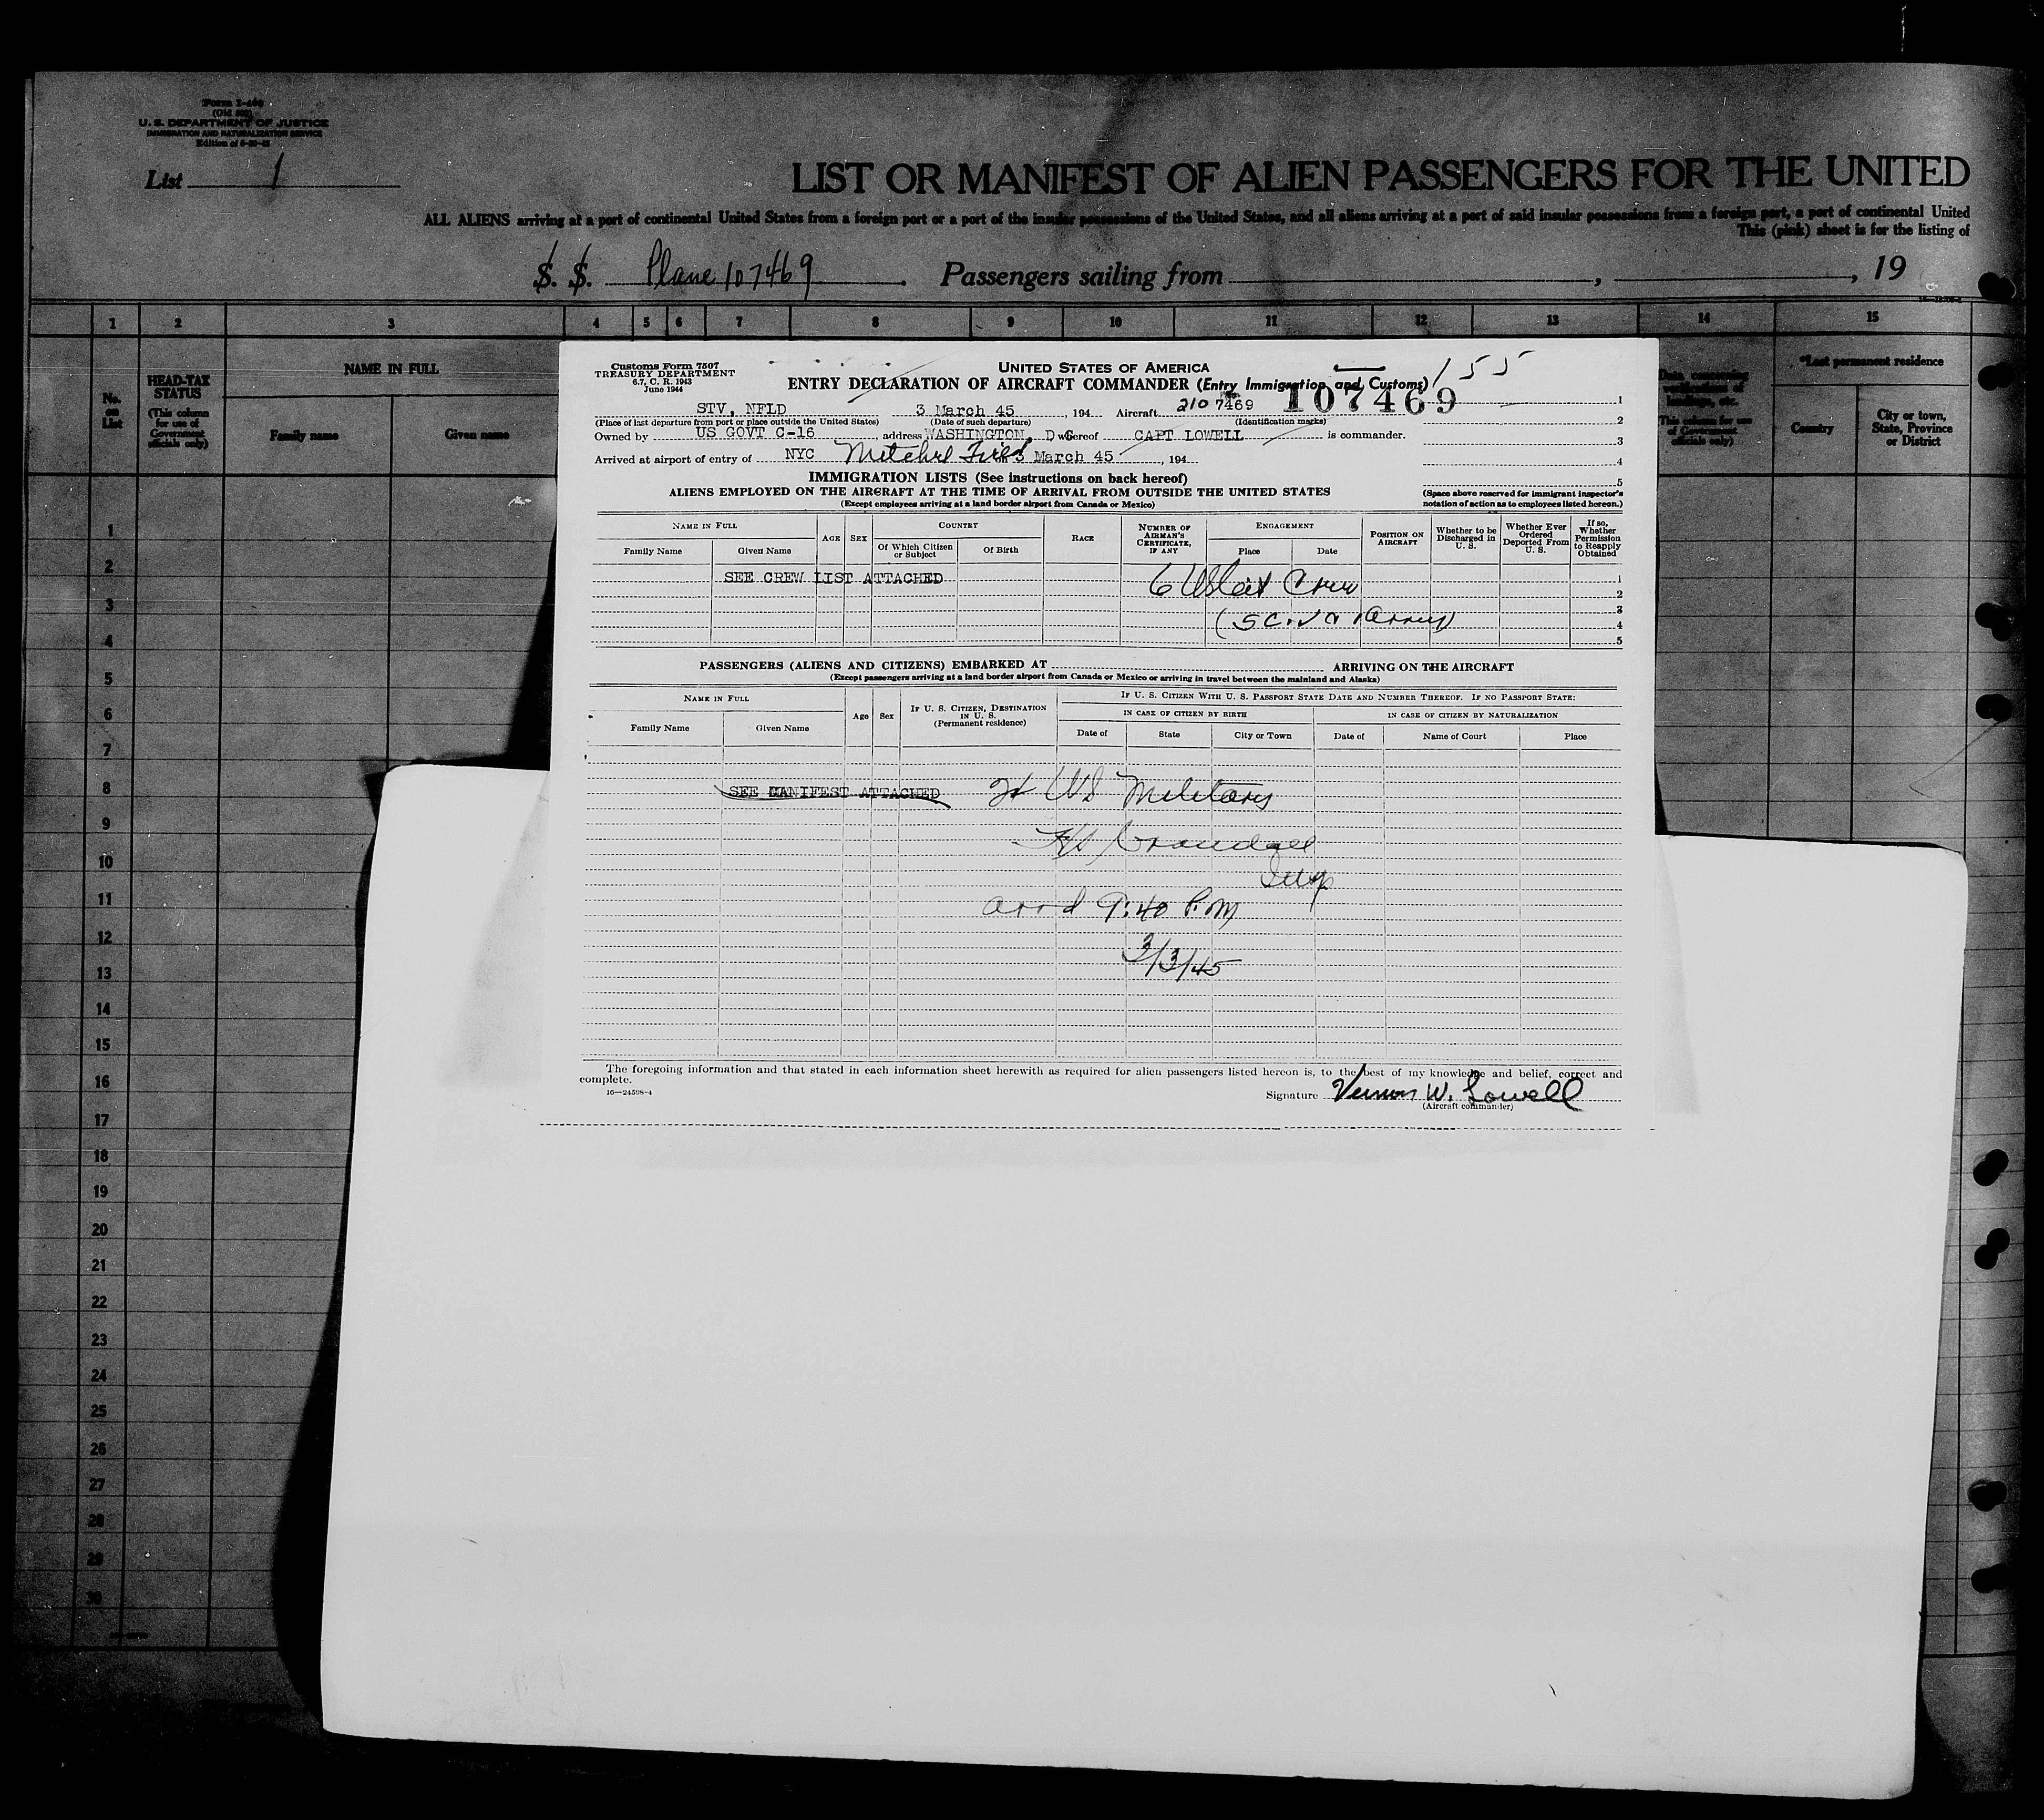 Form I-466
(Old 500)
U. S. DEPARTMENT OF JUSTICE
IMMIGRATION AND NATURALIZATION SERVICE
List 1
LIST OR MANIFEST OF ALIEN PASSENGERS FOR THE UNITED
ALL ALIENS arriving at a port of continental United States from a foreign port or a port of the insular possessions of the United States, and all aliens arriving at a port of said insular possessions from a foreign port, a port of continental United
This (pink) sheet is for the listing of
S. S. Plane 107469 . Passengers sailing from , , 19
1 2 3 4 5 6 7 8 9 10 11 12 13 14 15
No. on List
HEAD-TAX STATUS
(This column for use of Government officials only)
NAME IN FULL
Family name Given name
*Last permanent residence
Country
City or town, State, Province or District
1
2
3
4
5
6
7
8
9
10
11
12
13
14
15
16
17
18
19
20
21
22
23
24
25
26
27
28
29
30
Customs Form 7507
TREASURY DEPARTMENT
6.7, C. R. 1943
June 1944
UNITED STATES OF AMERICA
155
ENTRY DECLARATION OF AIRCRAFT COMMANDER (Entry Immigration and Customs)
STV, NFLD 3 March 45 , 194 Aircraft 210 7469 107469
(Place of last departure from port or place outside the United States) (Date of such departure) (Identification marks)
Owned by US GOVT C-16 , address WASHINGTON, D C whereof CAPT LOWELL is commander.
Arrived at airport of entry of NYC Mitchel Field 3 March 45 , 194
1
2
3
4
5
IMMIGRATION LISTS (See instructions on back hereof)
ALIENS EMPLOYED ON THE AIRCRAFT AT THE TIME OF ARRIVAL FROM OUTSIDE THE UNITED STATES
(Except employees arriving at a land border airport from Canada or Mexico)
(Space above reserved for immigrant inspector's notation of action as to employees listed hereon.)
NAME IN FULL
Family Name Given Name
AGE SEX
COUNTRY
Of Which Citizen or Subject Of Birth
RACE
NUMBER OF AIRMAN'S CERTIFICATE, IF ANY
ENGAGEMENT
Place Date
POSITION ON AIRCRAFT
Whether to be Discharged in U. S.
Whether Ever Ordered Deported From U. S.
If so, Whether Permission to Reapply Obtained
SEE CREW LIST ATTACHED 6 US Cit Crew
1
2
3
4
5
PASSENGERS (ALIENS AND CITIZENS) EMBARKED AT ARRIVING ON THE AIRCRAFT
(Except passengers arriving at a land border airport from Canada or Mexico or arriving in travel between the mainland and Alaska)
NAME IN FULL
Family Name Given Name
Age Sex
IF U. S. CITIZEN, DESTINATION IN U. S.
(Permanent residence)
IF U. S. CITIZEN WITH U. S. PASSPORT STATE DATE AND NUMBER THEREOF. IF NO PASSPORT STATE:
IN CASE OF CITIZEN BY BIRTH IN CASE OF CITIZEN BY NATURALIZATION
Date of State City or Town Date of Name of Court Place
SEE MANIFEST ATTACHED US Military
Crandall
Insp
arrd 9:40 P.M
3/3/45
The foregoing information and that stated in each information sheet herewith as required for alien passengers listed hereon is, to the best of my knowledge and belief, correct and
complete.
16—24598-4
Signature Vernon W. Lowell
(Aircraft commander)